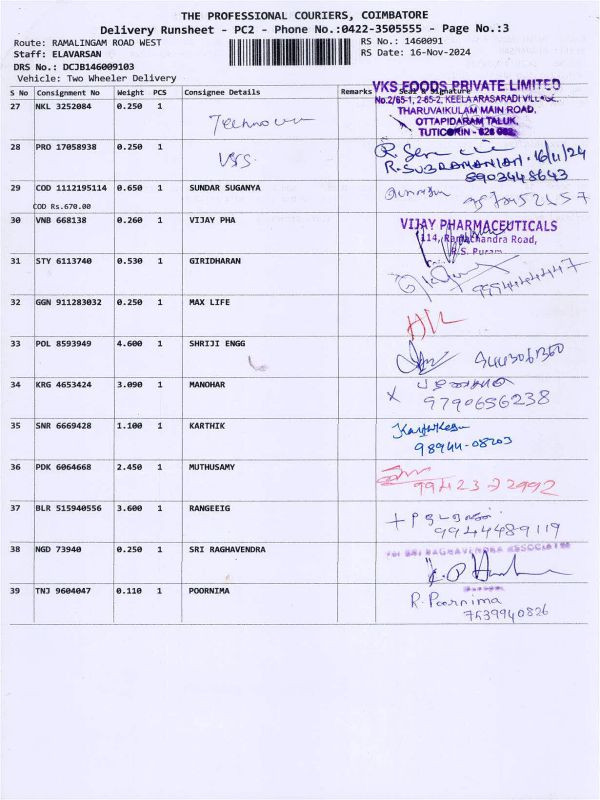 THE PROFESSIONAL COURIERS, COIMBATORE
Delivery Runsheet - PC2 - Phone No.:0422-3505555 - Page No.:3
Route: RAMALINGAM ROAD WEST
RS No.: 1460091
Staff: ELAVARSAN
RS Date: 16-Nov-2024
DRS No.: DCJB146009103
Vehicle: Two Wheeler Delivery
S No Consignment No Weight PCS Consignee Details Remarks Seal & Signature
VKS FOODS PRIVATE LIMITED
No.2/65-1, 2-65-2, KEELA ARASARADI VILLAGE,
THARUVAIKULAM MAIN ROAD,
OTTAPIDARAM TALUK,
TUTICORIN - 628
27 NKL 3252084 0.250 1
28 PRO 17058938 0.250 1
R. SUBRAMANIAN. 16/11/24
8903448643
29 COD 1112195114 0.650 1 SUNDAR SUGANYA
COD Rs.670.00
30 VNB 668138 0.260 1 VIJAY PHA
VIJAY PHARMACEUTICALS
114, Ramachandra Road,
R.S. Puram
31 STY 6113740 0.530 1 GIRIDHARAN
32 GGN 911283032 0.250 1 MAX LIFE
33 POL 8593949 4.600 1 SHRIJI ENGG
34 KRG 4653424 3.090 1 MANOHAR
9790656238
35 SNR 6669428 1.100 1 KARTHIK
98944-08203
36 PDK 6064668 2.450 1 MUTHUSAMY
99423 22992
37 BLR 515940556 3.600 1 RANGEEIG
9944489119
38 NGD 73940 0.250 1 SRI RAGHAVENDRA
For SRI RAGHAVENDRA ASSOCIATES
39 TNJ 9604047 0.110 1 POORNIMA
R. Poornima
7539940826